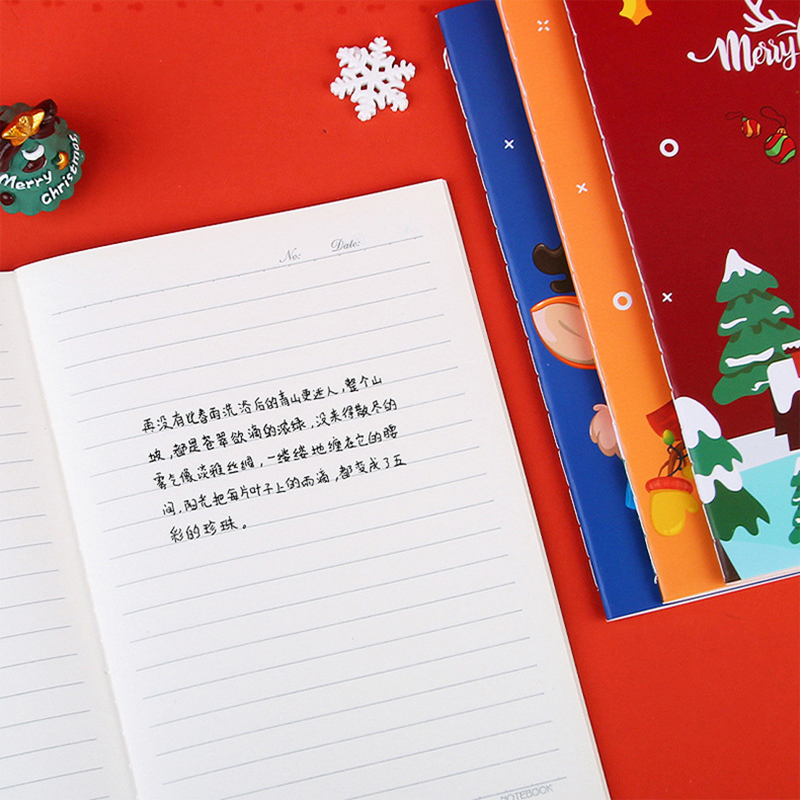 Merry
Merry Christmas
No:   Date:
再没有比春雨洗浴后的青山更迷人,整个山
坡,都是苍翠欲滴的浓绿,没来得散尽的
雾气像淡雅丝绸,一缕缕地缠在它的腰
间,阳光把每片叶子上的雨滴,都变成了五
彩的珍珠。
NOTEBOOK